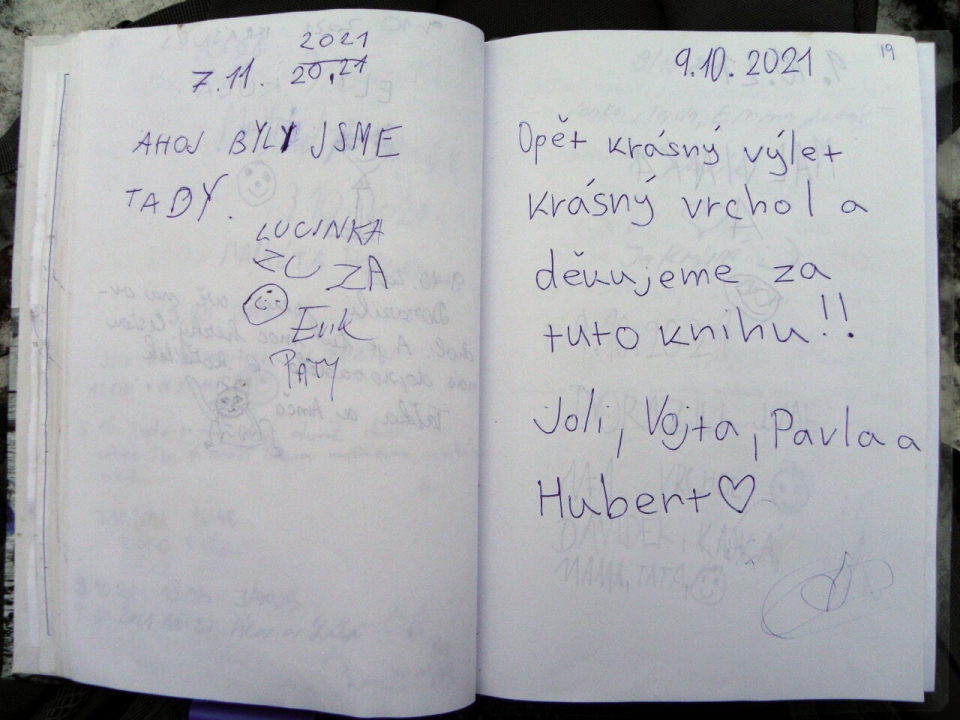 2021
7.11. 20.21
AHOJ BYLY JSME
TADY.
LUCINKA
ZUZA
Erik
PATY
19
9.10.2021
Opět krásný výlet
krásný vrchol a
děkujeme za
tuto knihu!!
Joli, Vojta, Pavla a
Hubert♡